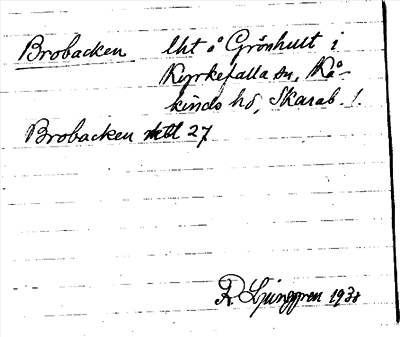 Brobacken lht å Grönhult i
Kyrkefalla sn, Kå-
kinds hd, Skarab. l.
Brobacken mtl 27
R. Ljunggren 1938